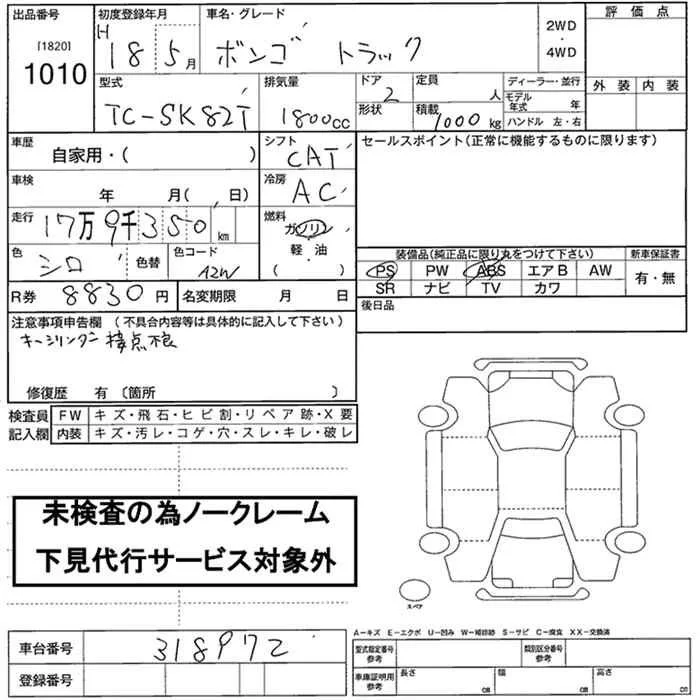 出品番号 初度登録年月 車名・グレード 評価点
[1820] H 18 5月 ボンゴ トラック 2WD・4WD
1010
型式 排気量 ドア 定員 ディーラー・並行 外装 内装
TC-SK82T 1800cc 2 人 モデル年式 年
形状 積載 1000kg ハンドル 左・右
車歴 シフト セールスポイント(正常に機能するものに限ります)
自家用・( ) CAT
車検 冷房
年 月( 日) AC
走行 燃料
17万9千350km ガソリン
軽・油
( )
色 色替 色コード 装備品(純正品に限り丸をつけて下さい) 新車保証書
シロ A2W PS PW ABS エアB AW 有・無
SR ナビ TV カワ
R券 8830円 名変期限 月 日 後日品
注意事項申告欄 (不具合内容等は具体的に記入して下さい)
キーシリンダー接点不良
修復歴 有(箇所 )
検査員 FW キズ・飛石・ヒビ割・リペア跡・X要
記入欄 内装 キズ・汚レ・コゲ・穴・スレ・キレ・破レ
未検査の為ノークレーム
下見代行サービス対象外
スペア
A-キズ E-エクボ U-凹み W-補修跡 S-サビ C-腐食 XX-交換済
車台番号 318972 型式指定番号 参考 類別区分番号 参考
登録番号 車庫証明用 参考 長さ cm 幅 cm 高さ cm